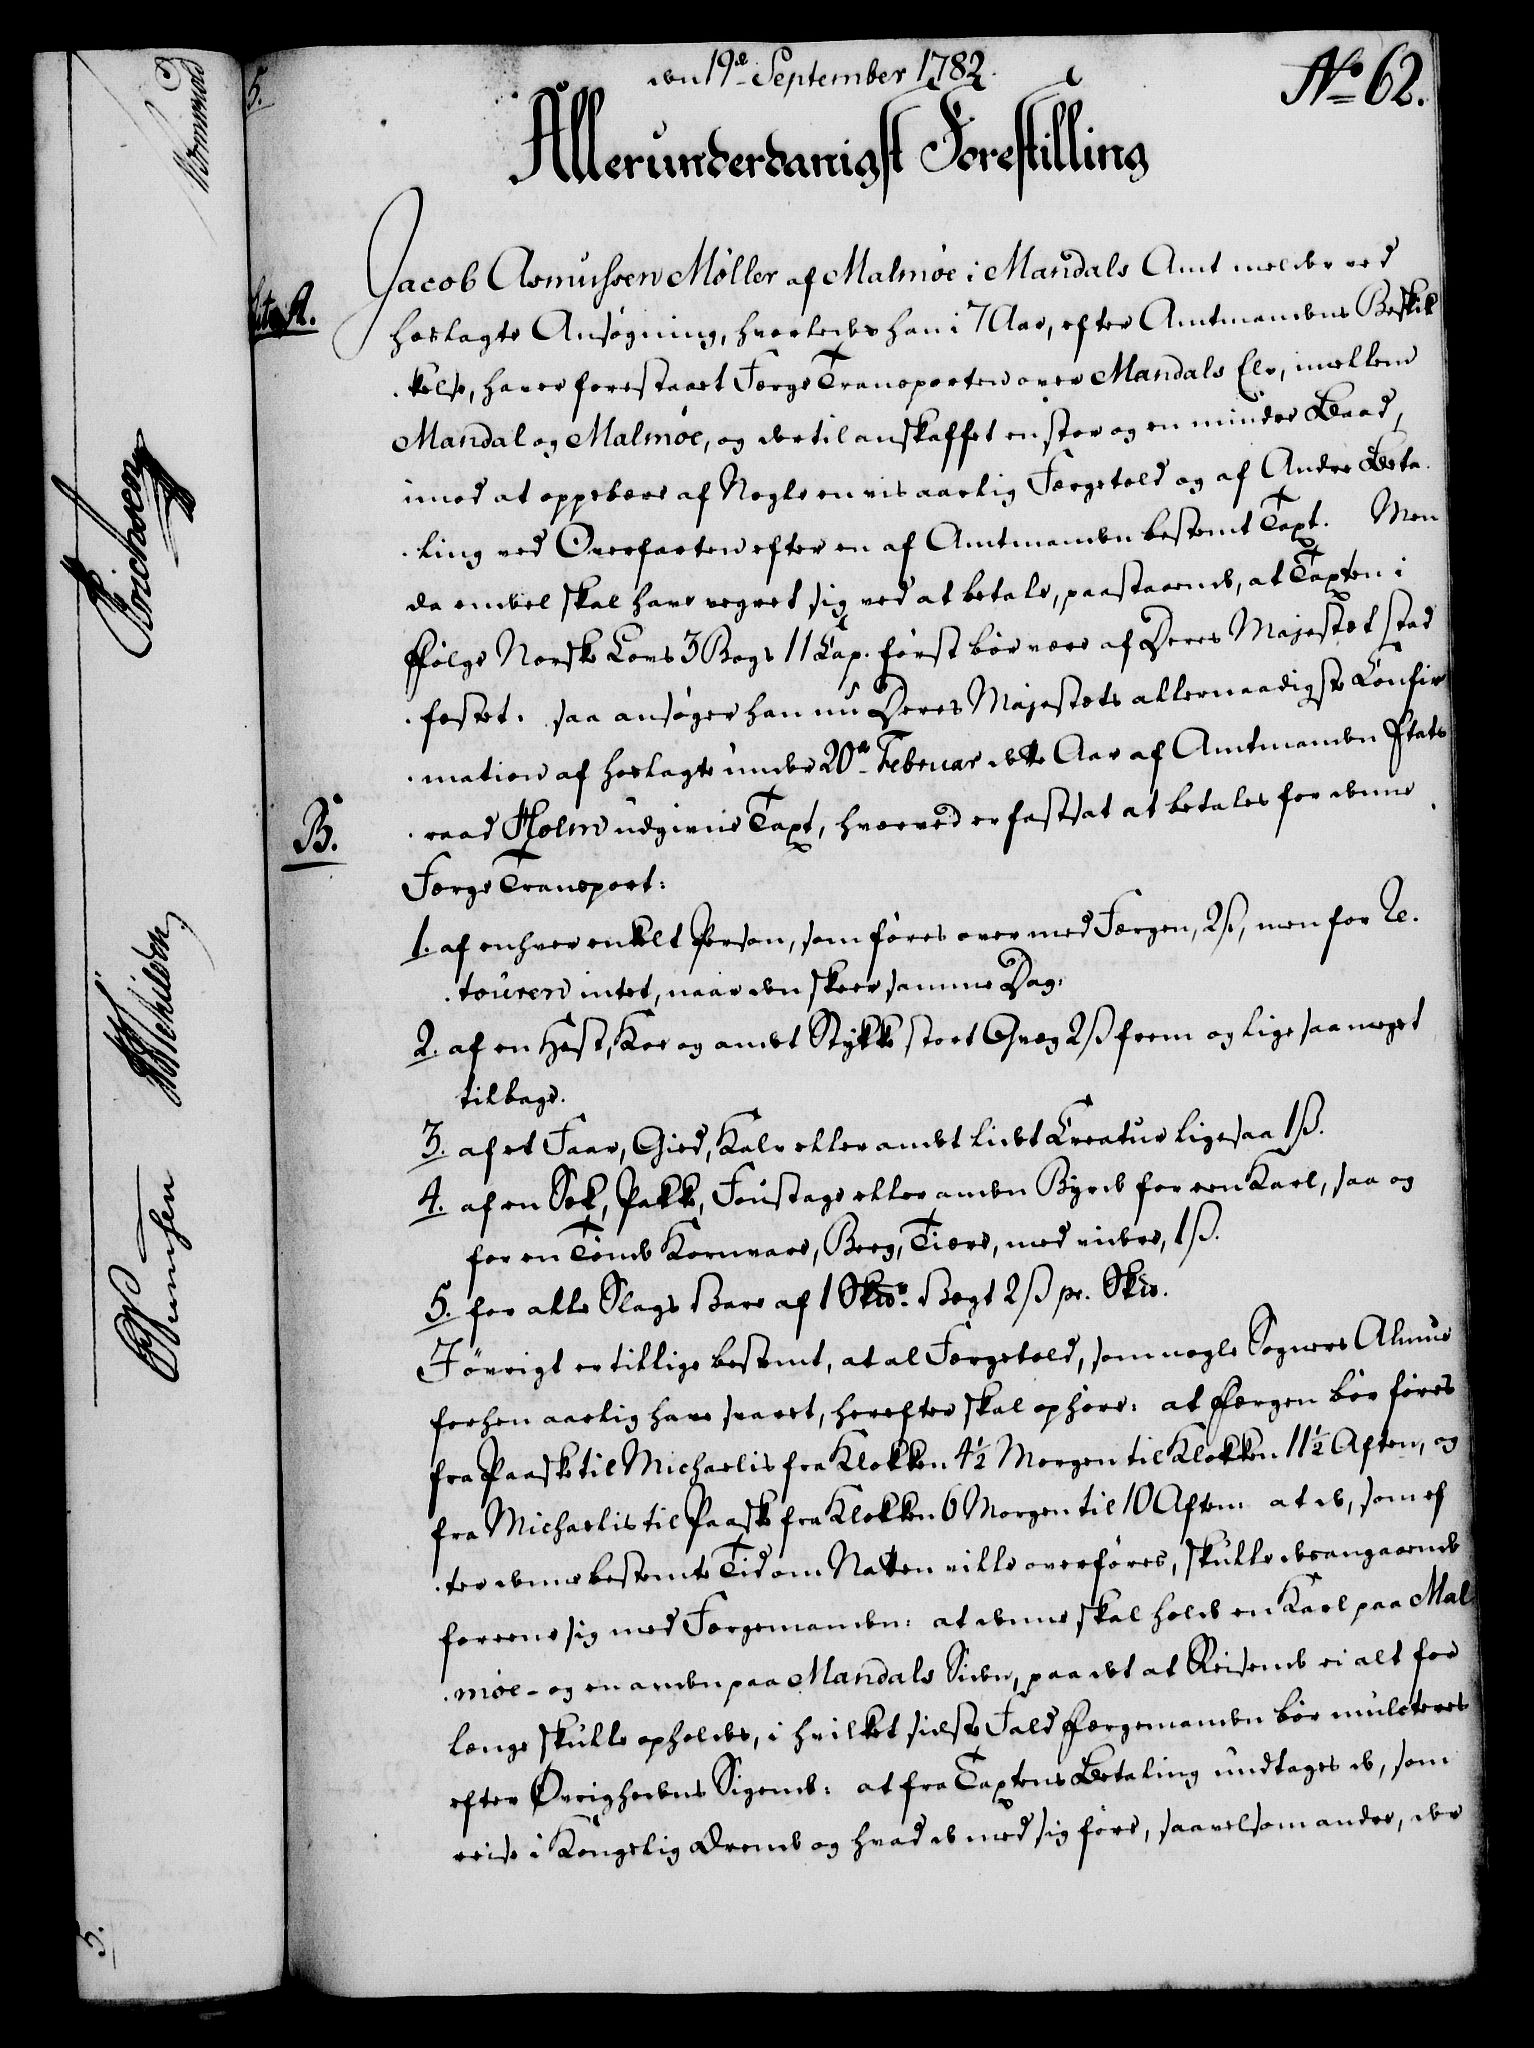 den 19de September 1782.
No 62.
Allerunderdanigst Forestilling
Lit. A.
Jacob Asmussen Møller af Malmøe i Mandals Amt melder ved
hoslagte Ansøgning, hvorledes han i 7 Aar, efter Amtmandens Beskik
kelse, haver forestaaet Færge Transporten over Mandals Elv, imellem
Mandal og Malmøe, og dertil anskaffet en stor og en mindre Baad,
imod at oppebære af Nogle en vis aarlig Færgetold og af Andre Beta
ling ved Overfarten efter en af Amtmanden bestemt Taxt. Men
da endeel skal have vegret sig ved at betale, paastaaende, at Taxten i
Følge Norske Lovs 3 Bogs 11 Cap. først bør være af Deres Majestæt stad
fæstet. saa ansøger han nu Deres Majestæts allernaadigste Confir
mation af hoslagte under 20de Februar dette Aar af Amtmanden Etats
B.
raad Holm udgivne Taxt, hvorved er fastsat at betales for denne
Færge Transport:
1. af enhver enkelt Person, som føres over med Færgen, 2ß, men for Re
touren intet, naar den skeer samme Dag.
2. af en Hest, Koe og andet Stykke stort Qvæg 2ß frem og lige saa meget
tilbage.
3. af et Faar, Gied, Kalv eller andet lidet Creatur ligesaa 1ß.
4. af en Sæk, Pakke, Foustage eller anden Byrde for een Karl, saa og
for en Tønde Kornvare, Beeg, Tiære, med videre, 1ß.
5. for alle Slags Vare af 1 Skd. Vægt 2ß pr. Skd.
I øvrigt er tillige bestemt, at al Færgetold, som nogle Sognes Almue
forhen aarlig have svaret, herefter skal ophøre: at Færgen bør føres
fra Paaske til Michaelis fra Klokken 4½ Morgen til Klokken 11½ Aften, og
fra Michaelis til Paaske fra Klokken 6 Morgen til 10 Aften: at de, som ef
ter denne bestemte Tid om Natten ville overføres, skulle desangaaende
foreene sig med Færgemanden: at denne skal holde en Karl paa Mal
møe- og en anden paa Mandals Siden, paa det at Reisende ei alt for
længe skulle opholdes, i hvilket sidste Fald Færgemanden bør mulcteres
efter Øvrighedens Sigende: at fra Taxtens Betaling undtages de, som
reise i Kongelig Ærende og hvad de med sig føre, saavelsom andre, der